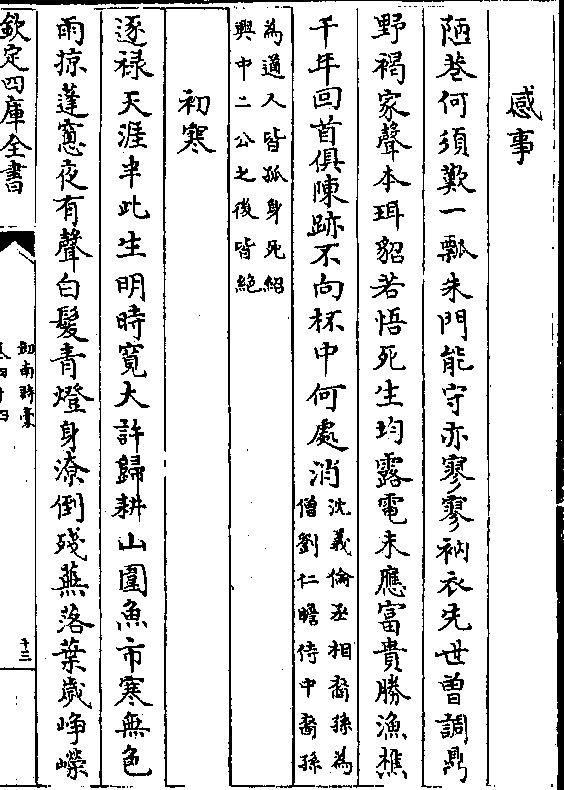 感事
陋巷何須歎一瓢朱門能守亦寥寥衲衣先世曽調鼎
野褐家聲本珥貂若悟死生均露電未應富貴勝漁樵
千年回首俱陳跡不向杯中何處消沈義倫丞相裔孫為
僧劉仁瞻侍中裔孫
為道人皆孤身死紹
興中二公之後皆絶
初寒
逐禄天涯半此生明時寛大許歸耕山圍魚市寒無色
雨掠蓬窻夜有聲白髪青燈身潦倒殘蕪落葉歲崢嶸
欽定四庫全書
劒南詩稾
卷四十四
十三